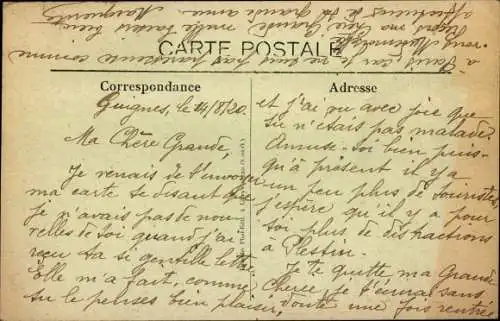 CARTE POSTALE
Correspondance
Adresse
Guignes, le 14/8/20.
Ma Chère Grande,
Je venais de t'envoyer
ma carte te disant que
je n'avais pas de nou-
velles de toi quand j'ai
reçu ta si gentille lettre
Elle m'a fait, comme
tu le penses bien plaisir,
et j'ai vu avec joie que
tu n'étais pas malade.
Amuse-toi bien puis-
qu'à présent il y a
un peu plus de touristes,
j'espère qu'il y a pour
toi plus de distractions
à Plestin.
Je te quitte ma Grande
Chérie, je t'écrirai sans
doute une fois rentrée
à Paris car je ne suis pas
Reçois ma chère Grande mille baisers bien
affectueux de ta grande amie
Marguerite